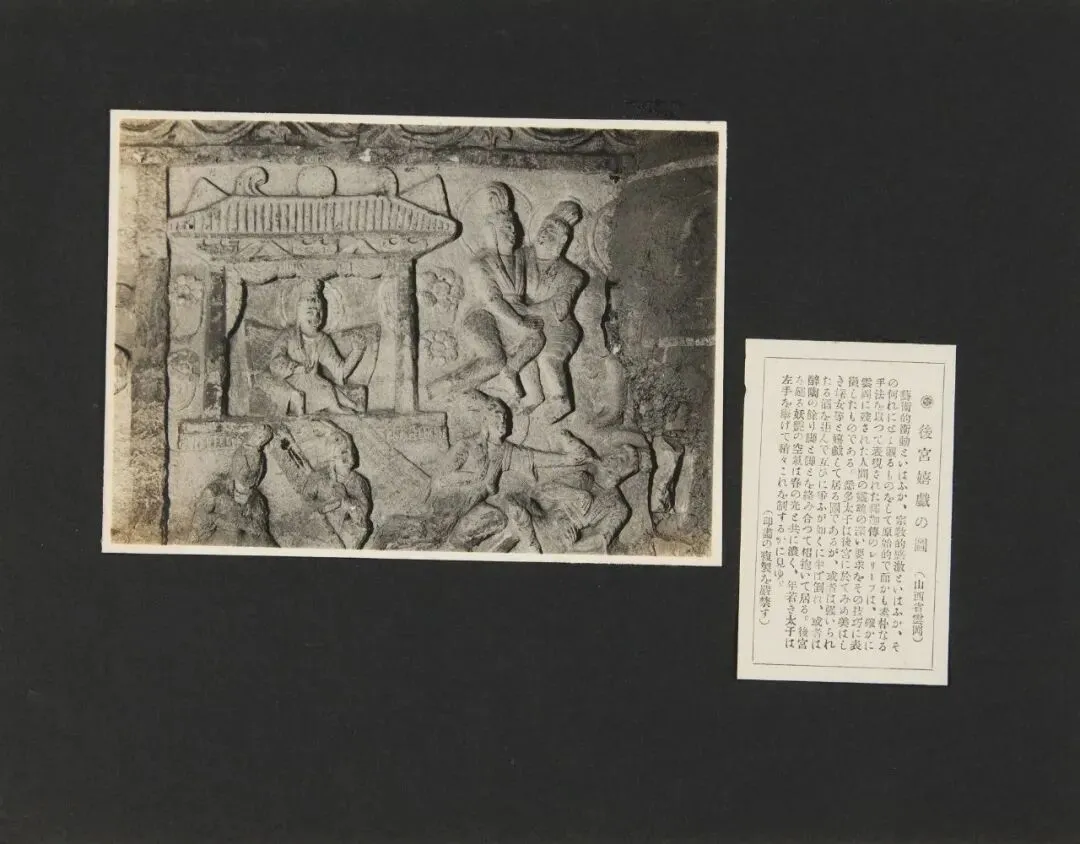 後宮嬉戯の圖 (山西省雲岡)
藝術的衝動といはふか、宗敎的感激といはふか、そ
の何れにせよ觀るものをして原始的で而かも素朴なる
手法を以つて表現された佛傳のレリーフは、確かに
雲岡に殘された人間の靈魂の深い要求をその技巧に表
現したものである。悉多太子は後宮に於てみめ美はし
き婇女等と嬉戯して居る圖であるが、或者は强いられ
たる酒を 互ひに 如くに 倒れ、或者は
醉陶の餘り脚と脚とを絡み合つて相抱いて居る。後宮
な 妖艶の空氣は春の光と共に濃く、年若き太子は
左手を擧げて稍々これを制するかに見ゆ。
(印畫の複製を嚴禁す)